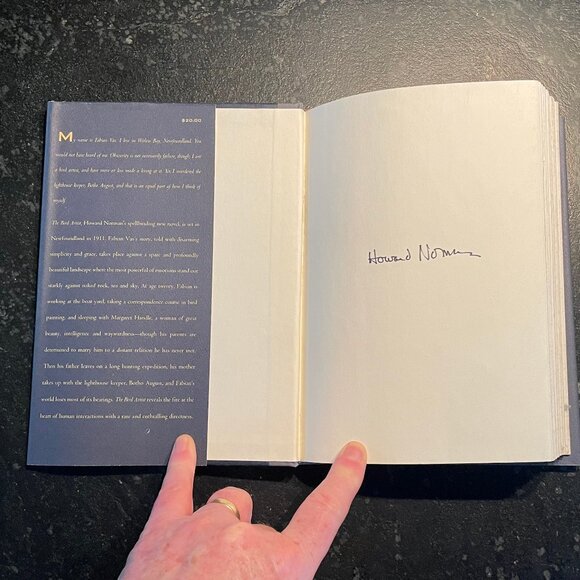 $20.00
My name is Fabian Vas. I live in Witless Bay, Newfoundland. You
would not have heard of me. Obscurity is not necessarily failure, though; I am
a bird artist, and have more or less made a living at it. Yet I murdered the
lighthouse keeper, Botho August, and that is an equal part of how I think of
myself.
The Bird Artist, Howard Norman's spellbinding new novel, is set in
Newfoundland in 1911. Fabian Vas's story, told with disarming
simplicity and grace, takes place against a spare and profoundly
beautiful landscape where the most powerful of emotions stand out
starkly against naked rock, sea and sky. At age twenty, Fabian is
working at the boat yard, taking a correspondence course in bird
painting, and sleeping with Margaret Handle, a woman of great
beauty, intelligence and waywardness—though his parents are
determined to marry him to a distant relation he has never met.
Then his father leaves on a long hunting expedition, his mother
takes up with the lighthouse keeper, Botho August, and Fabian's
world loses most of its bearings. The Bird Artist reveals the fire at the
heart of human interactions with a rare and enthralling directness.
Howard Norman